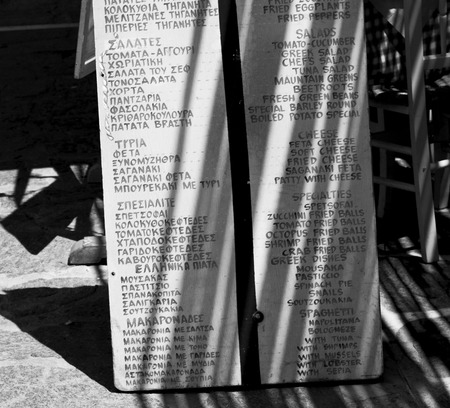 ΚΟΛΟΚΥΘΙΑ ΤΗΓΑΝΗΤΑ
ΜΕΛΙΤΖΑΝΕΣ ΤΗΓΑΝΗΤΕΣ
ΠΙΠΕΡΙΕΣ ΤΗΓΑΝΗΤΕΣ
ΣΑΛΑΤΕΣ
ΤΟΜΑΤΑ-ΑΓΓΟΥΡΙ
ΧΩΡΙΑΤΙΚΗ
ΣΑΛΑΤΑ ΤΟΥ ΣΕΦ
ΤΟΝΟΣΑΛΑΤΑ
ΧΟΡΤΑ
ΠΑΝΤΖΑΡΙΑ
ΦΑΣΟΛΑΚΙΑ
ΚΡΙΘΑΡΟΚΟΥΛΟΥΡΑ
ΠΑΤΑΤΑ ΒΡΑΣΤΗ
ΤΥΡΙΑ
ΦΕΤΑ
ΞΥΝΟΜΥΖΗΘΡΑ
ΣΑΓΑΝΑΚΙ
ΣΑΓΑΝΑΚΙ ΦΕΤΑ
ΜΠΟΥΡΕΚΑΚΙ ΜΕ ΤΥΡΙ
ΣΠΕΣΙΑΛΙΤΕ
ΣΠΕΤΣΟΦΑΙ
ΚΟΛΟΚΥΘΟΚΕΦΤΕΔΕΣ
ΤΟΜΑΤΟΚΕΦΤΕΔΕΣ
ΧΤΑΠΟΔΟΚΕΦΤΕΔΕΣ
ΓΑΡΙΔΟΚΕΦΤΕΔΕΣ
ΚΑΒΟΥΡΟΚΕΦΤΕΔΕΣ
ΕΛΛΗΝΙΚΑ ΠΙΑΤΑ
ΜΟΥΣΑΚΑΣ
ΠΑΣΤΙΤΣΙΟ
ΣΠΑΝΑΚΟΠΙΤΑ
ΣΑΛΙΓΚΑΡΙΑ
ΣΟΥΤΖΟΥΚΑΚΙΑ
ΜΑΚΑΡΟΝΑΔΕΣ
ΜΑΚΑΡΟΝΙΑ ΜΕ ΣΑΛΤΣΑ
ΜΑΚΑΡΟΝΙΑ ΜΕ ΚΙΜΑ
ΜΑΚΑΡΟΝΙΑ ΜΕ ΤΟΝΟ
ΜΑΚΑΡΟΝΙΑ ΜΕ ΓΑΡΙΔΕΣ
ΜΑΚΑΡΟΝΙΑ ΜΕ ΜΥΔΙΑ
ΑΣΤΑΚΟΜΑΚΑΡΟΝΑΔΑ
ΜΑΚΑΡΟΝΙΑ ΜΕ ΣΟΥΠΙΑ
FRIED EGGPLANTS
FRIED PEPPERS
SALADS
TOMATO-CUCUMBER
GREEK SALAD
CHEF'S SALAD
TUNA SALAD
MAUNTAIN GREENS
BEETROOTS
FRESH GREEN BEANS
SPECIAL BARLEY ROUND
BOILED POTATO SPECIAL
CHEESE
FETA CHEESE
SOFT CHEESE
FRIED CHEESE
SAGANAKI FETA
PATTY WITH CHEESE
SPECIALTIES
SPETSOFAI
ZUCCHINI FRIED BALLS
TOMATO FRIED BALLS
OCTOPUS FRIED BALLS
SHRIMP FRIED BALLS
CRAB FRIED BALLS
GREEK DISHES
MOUSAKA
PASTICCIO
SPINACH PIE
SNAILS
SOUTZOUKAKIA
SPAGHETTI
NAPOLITANA
BOLOGNEZE
WITH TUNA
WITH SHRIMPS
WITH MUSSELS
WITH LOBSTER
WITH SEPIA